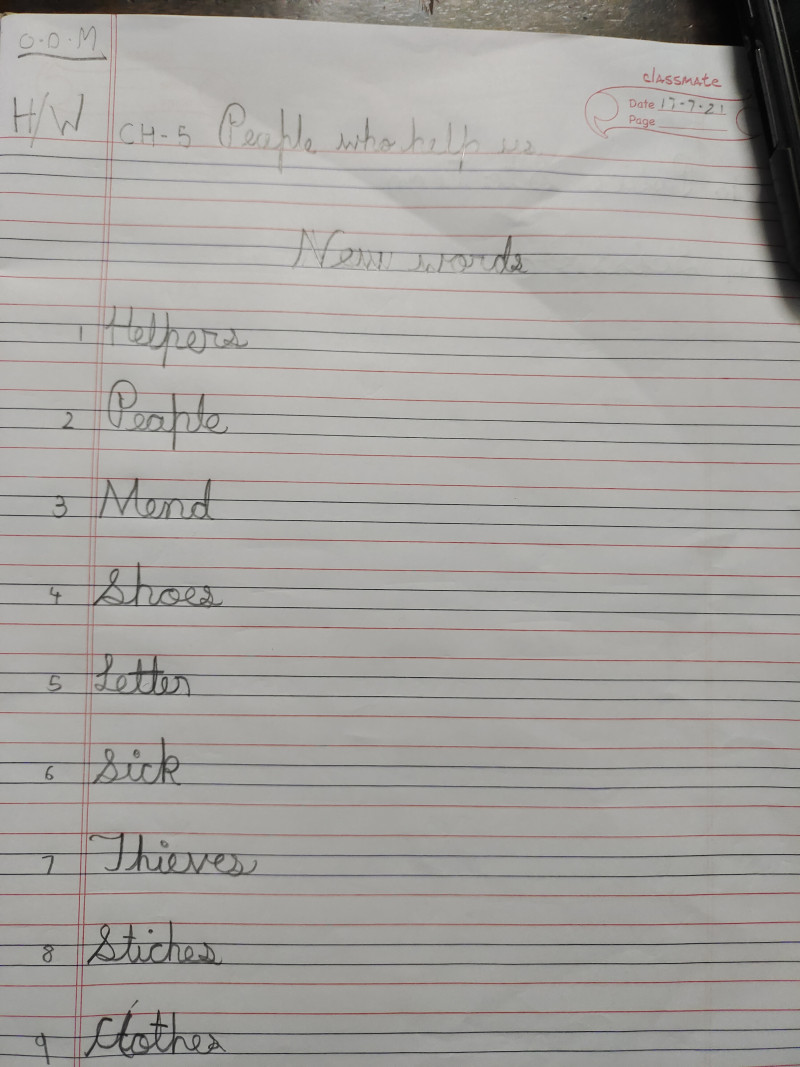 O.D.M
classmate
Date 17-7-21
Page
H/W CH-5 Peaple who help us
New words
1 Helpers
2 Peaple
3 Mend
4 Shoes
5 Letter
6 Sick
7 Thieves
8 Stiches
9 Clothes